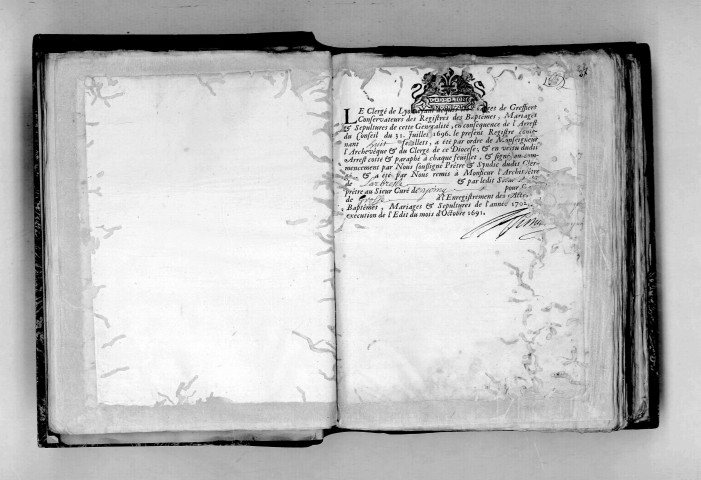 LE Clergé de Lyon ayant acquis les Offices de Greffiers
Conservateurs des Registres des Baptêmes, Mariages
& Sepultures de cette Generalité, en consequence de l'Arrest
du Conseil du 31. Juillet 1696. le present Registre conte-
nant huit feüillets, a été par ordre de Monseigneur
l'Archevêque & du Clergé de ce Diocese; & en vertu dudit
Arrest cotté & paraphé à chaque feuillet, & signé au com-
mencement par Nous soussigné Prêtre & Syndic dudit Cler-
gé & a été par Nous remis à Monsieur l'Archiprêtre
de & par ledit Sieur
prêtre au Sieur Curé de pour
de à l'Enregistrement des Actes
Baptêmes, Mariages & Sepultures de l'année 1702.
execution de l'Edit du mois d'Octobre 1691.